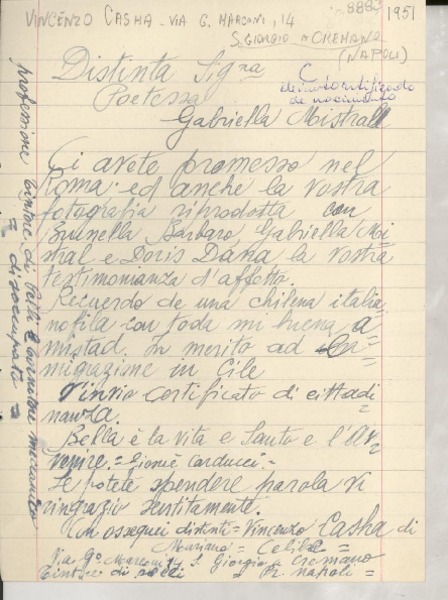 VINCENZO CASHA - VIA G. MARCONI, 14
S. GIORGIO A CREMANO
(NAPOLI)
8883
1951
Distinta Sig.ra
Poetessa
Gabriella Mistrall
de nacimiento
Ci avete promesso nel
Roma ed anche la vostra
fotografia riprodotta con
Brunella Barbaro Gabriella Mi
stral e Doris Dana la vostra
testimonianza d'affetto.
Recuerdo de una chilena italia
nofila con toda mi buena a=
mistad. In merito ad
migrazione in Cile
v'invio certificato di cittadi
nanza.
Bella è la vita e Santo è l'Av=
venire. = Giosuè Carducci. =
Se potete spendere parola vi
ringrazio sentitamente.
Con ossequi distinti = Vincenzo Casha di
Via G. Marconi 14 S. Giorgio a Cremano
Tintore di pelli = Pr. Napoli =
professione tintore di pelli e tornitore meccanico
= disoccupati =